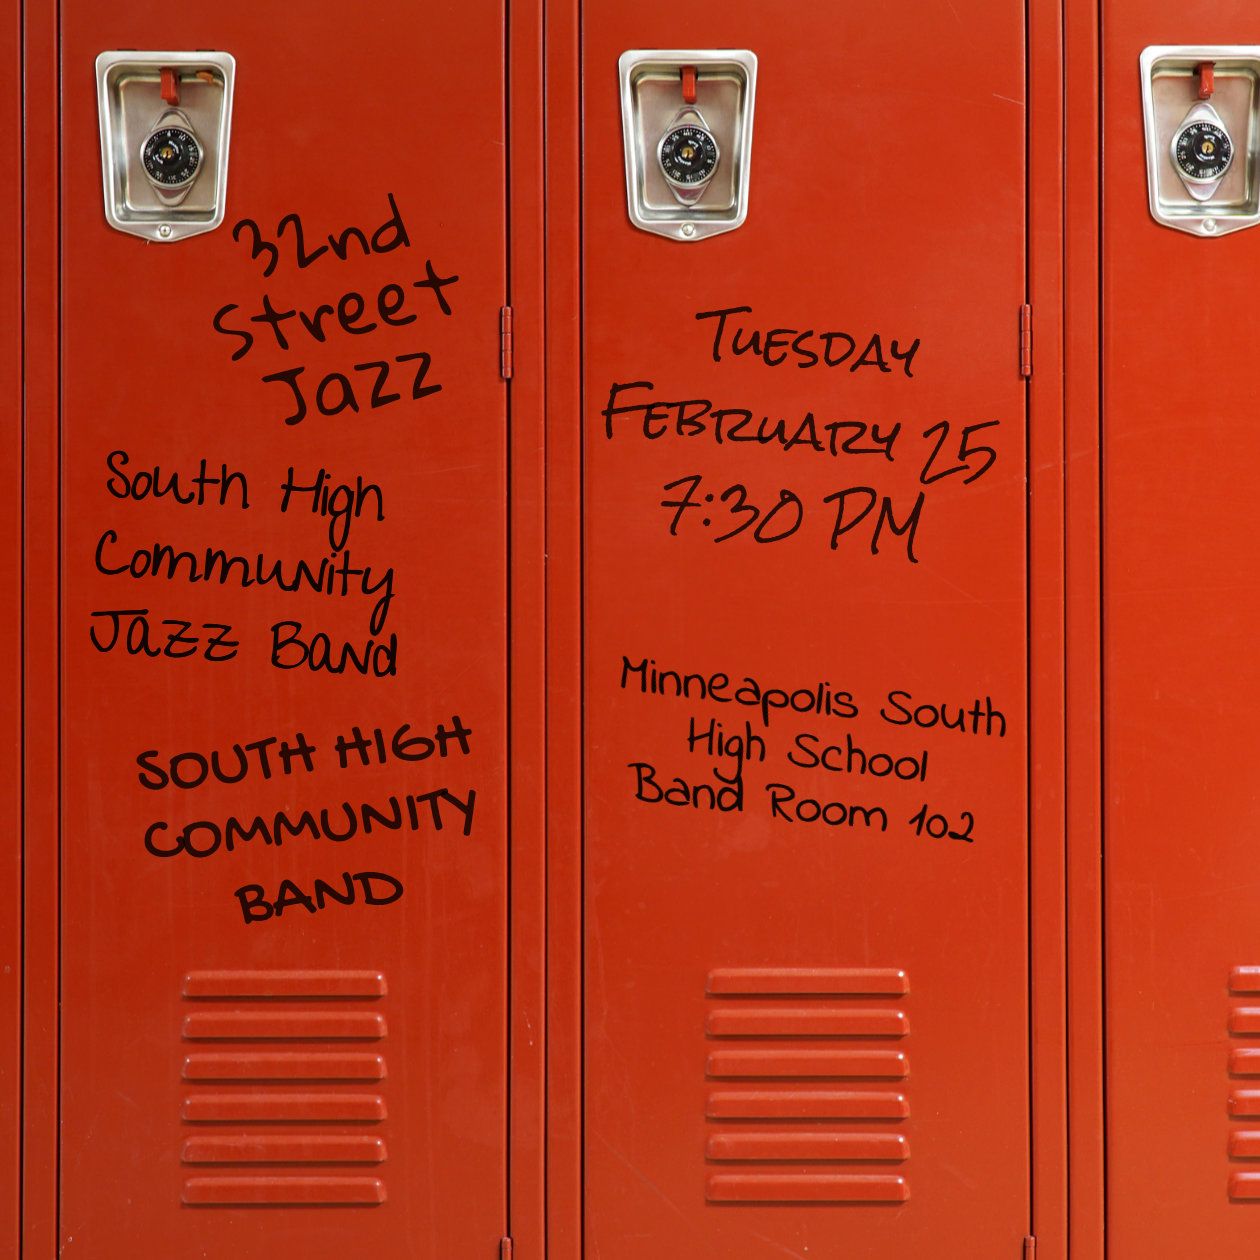 32nd
Street
Jazz
South High
Community
Jazz Band
SOUTH HIGH
COMMUNITY
BAND
TUESDAY
FEBRUARY 25
7:30 PM
Minneapolis South
High School
Band Room 102